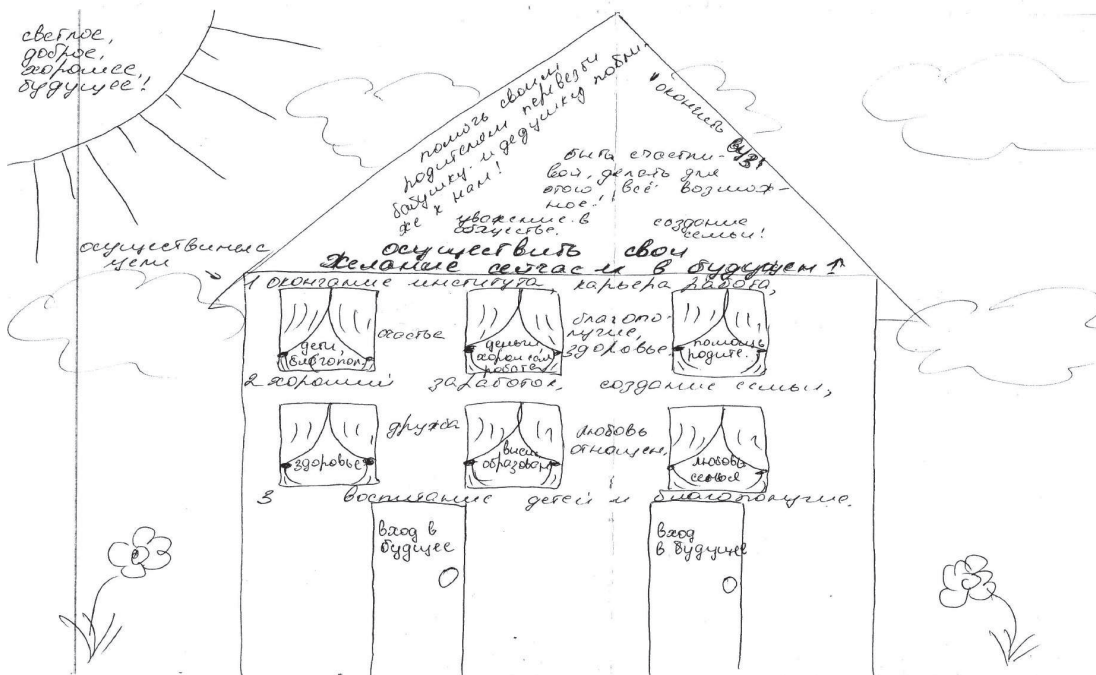 светлое,
доброе,
хорошее,
будущее!
помочь своим
родителям перевезти
бабушку и дедушку побли-
же к нам!
окончить ВУЗ!
быть счастли-
вой, делать для
этого всё возмож-
ное!!
уважение в
обществе.
создание
семьи!
осуществить свои
желание сейчас и в будущем ↑
осуществиние
цели
1 окончание института, карьера работа,
дети,
благопол.
счастье
деньги
хорошая
работа
благопо-
лучие,
здоровье.
помощь
родите.
2 хороший заработок, создание семьи,
здоровье
дружба
высш.
образован
любовь
отношен.
любовь
семья
3 воспитание детей и благополучие.
вход в
будущее
вход
в будущее